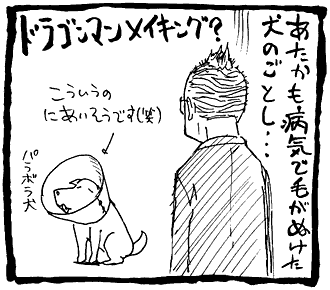 ドラゴンマンメイキング?
あたかも病気で毛がぬけた
犬のごとし…
こういうの
にあいそうです(笑)
パラボラ犬